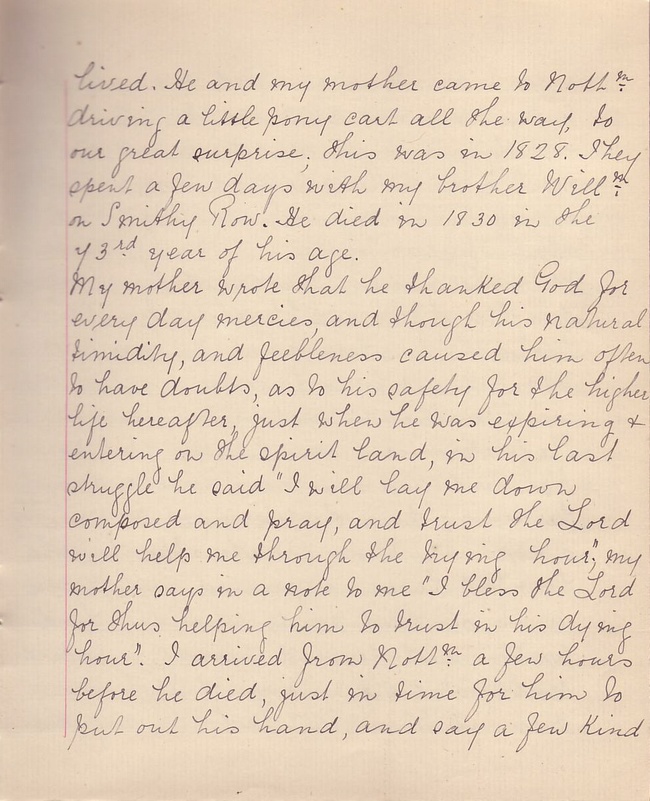 lived. He and my mother came to Nottm
driving a little pony cart all the way, to
our great surprise, this was in 1828. They
spent a few days with my brother Willm
on Smithy Row. He died in 1830 in the
73rd year of his age.
My mother wrote that he thanked God for
every day mercies, and though his natural
timidity, and feebleness caused him often
to have doubts, as to his safety for the higher
life hereafter, just when he was expiring &
entering on the spirit land, in his last
struggle he said "I will lay me down
composed and pray, and trust the Lord
will help me through the trying hour", my
mother says in a note to me "I bless the Lord
for thus helping him to trust in his dying
hour". I arrived from Nottm a few hours
before he died, just in time for him to
put out his hand, and say a few kind